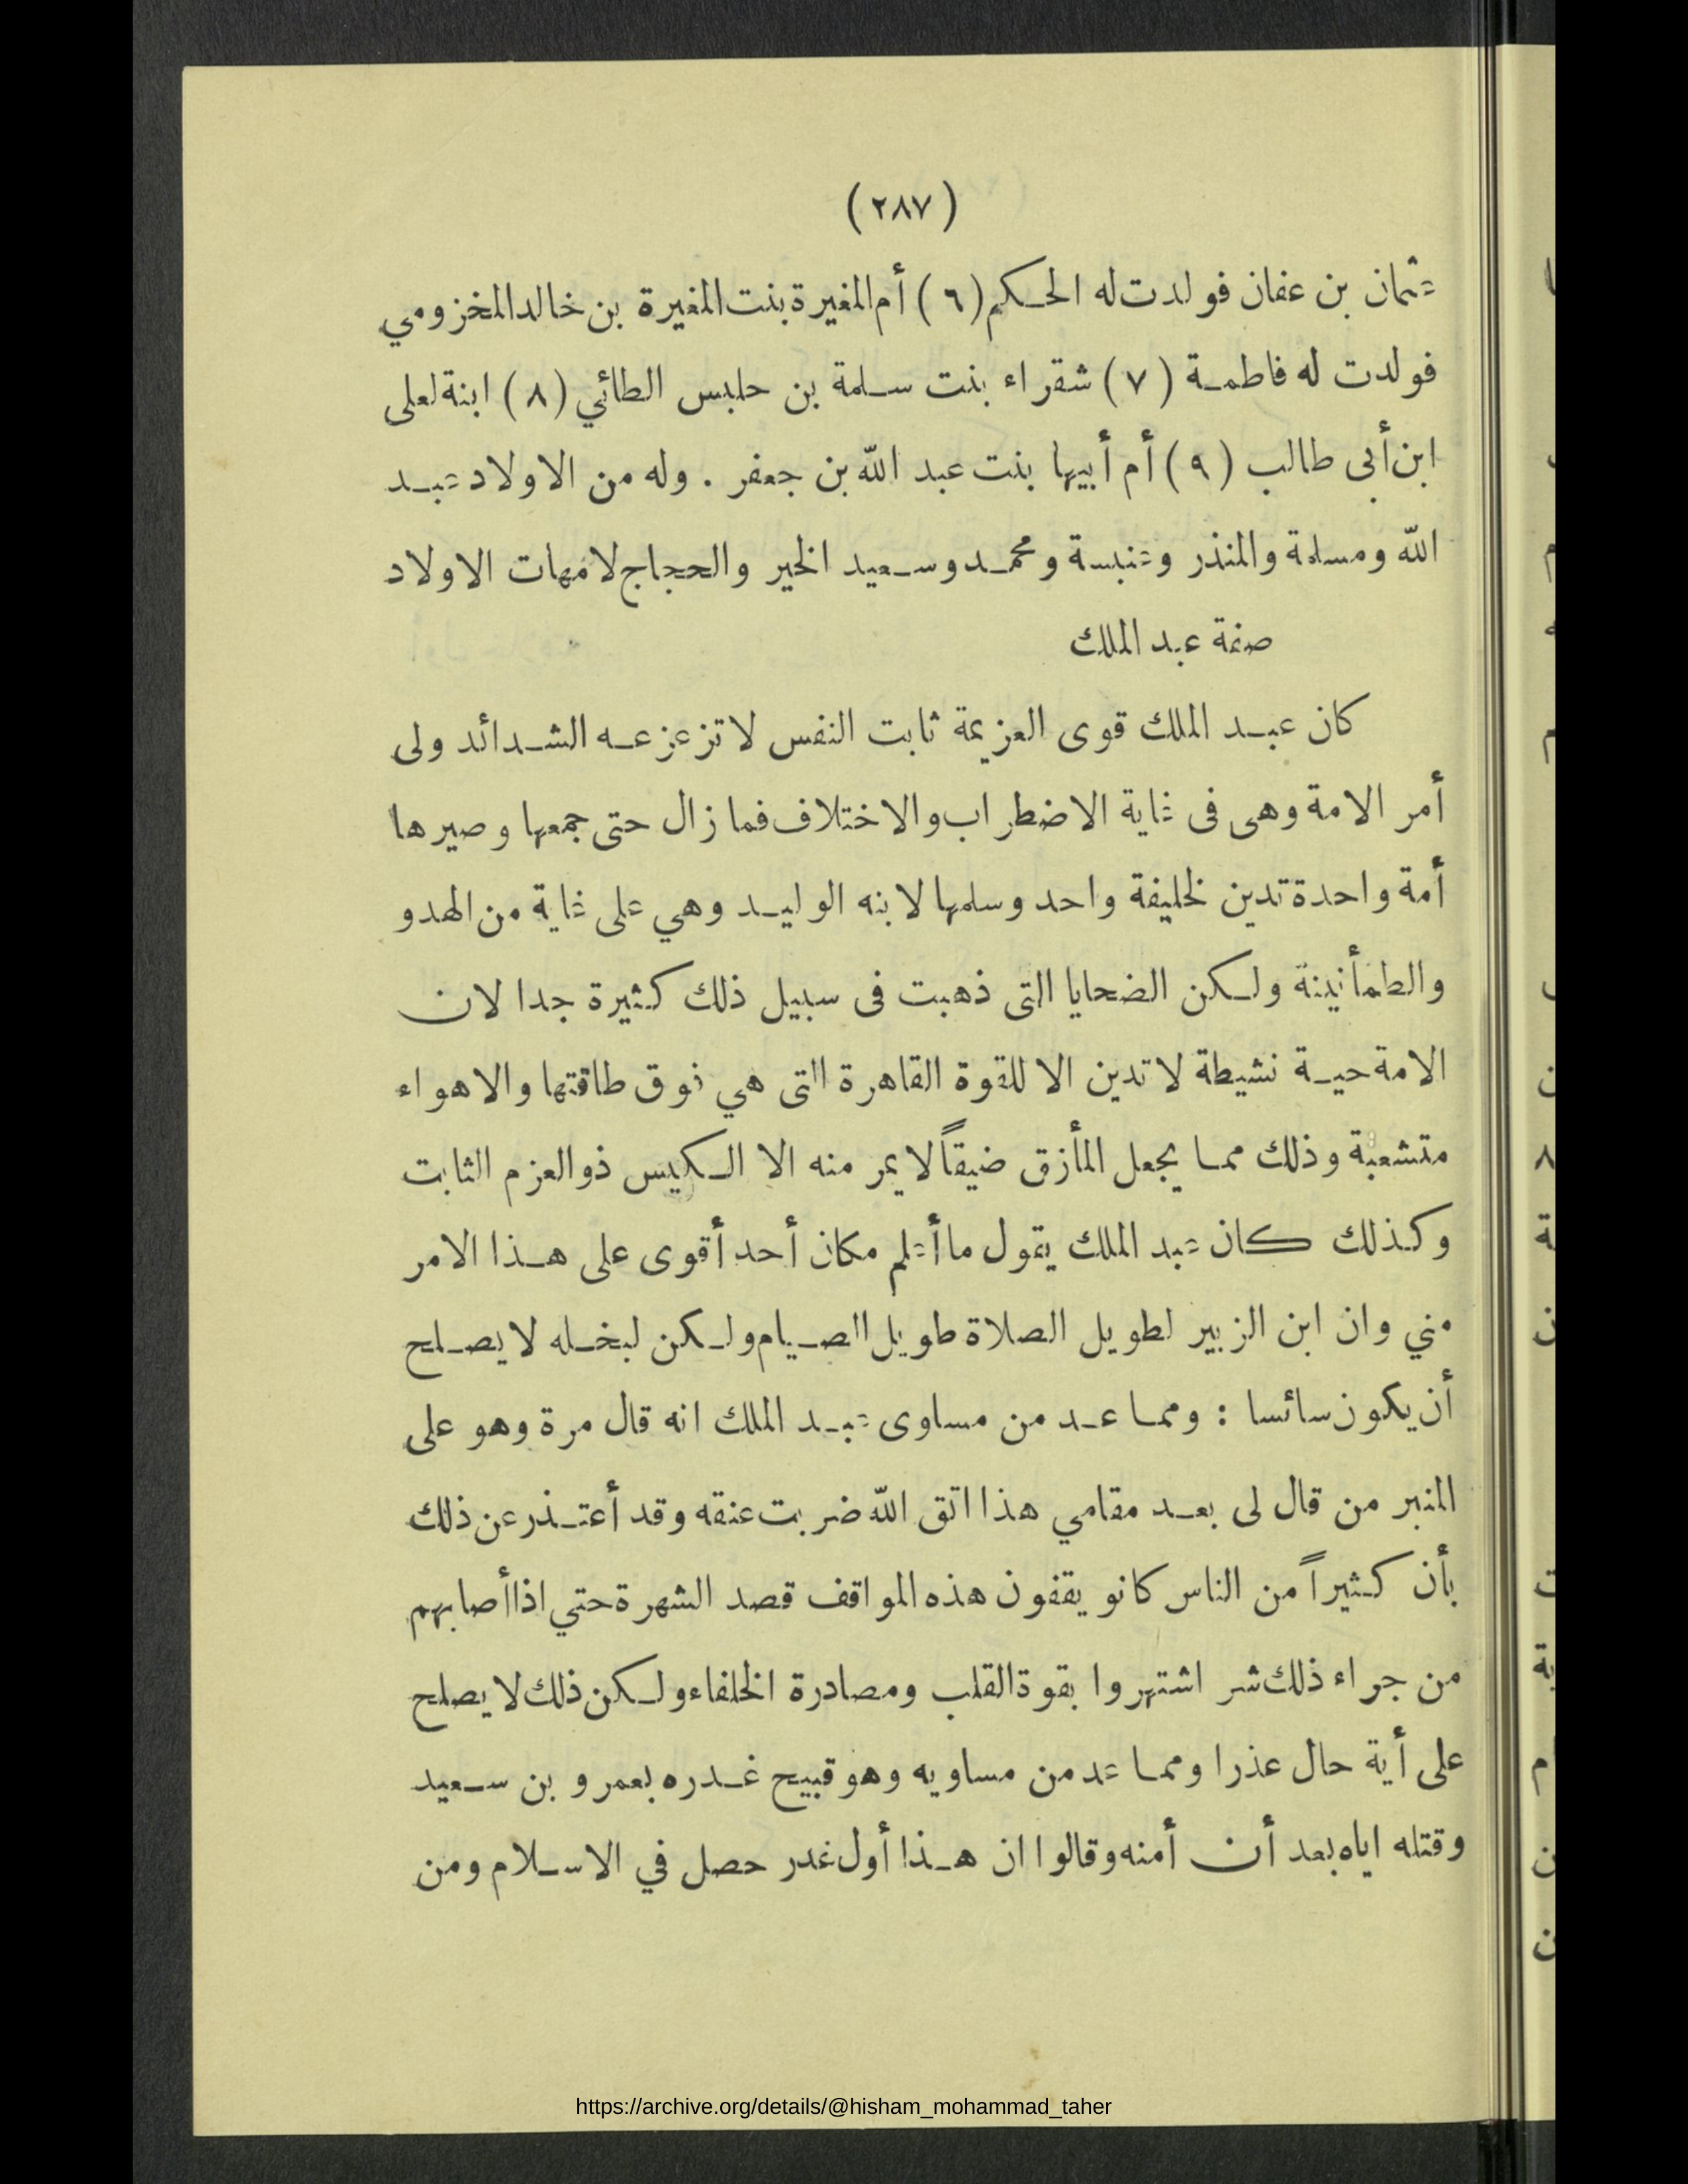 (٢٨٧)
عثمان بن عفان فولدت له الحكم (٦) أم المغيرة بنت المغيرة بن خالد المخزومي
فولدت له فاطمة (٧) شقراء بنت سلمة بن حلبس الطائي (٨) ابنة لعلى
ابن أبى طالب (٩) أم أبيها بنت عبد الله بن جعفر . وله من الاولاد عبد
الله ومسلمة والمنذر وعنبسة ومحمد وسعيد الخير والحجاج لامهات الاولاد
صفة عبد الملك
كان عبد الملك قوى العزيمة ثابت النفس لا تزعزعه الشدائد ولى
أمر الامة وهى فى غاية الاضطراب والاختلاف فما زال حتى جمعها وصيرها
أمة واحدة تدين لخليفة واحد وسلمها لابنه الوليد وهي على غاية من الهدو
والطمأنينة ولكن الضحايا التى ذهبت فى سبيل ذلك كثيرة جدا لان
الامة حية نشيطة لا تدين الا للقوة القاهرة التى هي فوق طاقتها والاهواء
متشعبة وذلك مما يجعل المأزق ضيقاً لا يمر منه الا الكيس ذو العزم الثابت
وكذلك كان عبد الملك يقول ما أعلم مكان أحد أقوى على هذا الامر
مني وان ابن الزبير لطويل الصلاة طويل الصيام ولكن لبخله لا يصلح
أن يكون سائسا : ومما عد من مساوى عبد الملك انه قال مرة وهو على
المنبر من قال لى بعد مقامي هذا اتق الله ضربت عنقه وقد أعتذر عن ذلك
بأن كثيراً من الناس كانو يقفون هذه المواقف قصد الشهرة حتي اذا أصابهم
من جراء ذلك شر اشتهروا بقوة القلب ومصادرة الخلفاء ولكن ذلك لا يصلح
على أية حال عذرا ومما عد من مساويه وهو قبيح غدره بعمرو بن سعيد
وقتله اياه بعد أن أمنه وقالوا ان هذا أول غدر حصل في الاسلام ومن
https://archive.org/details/@hisham_mohammad_taher